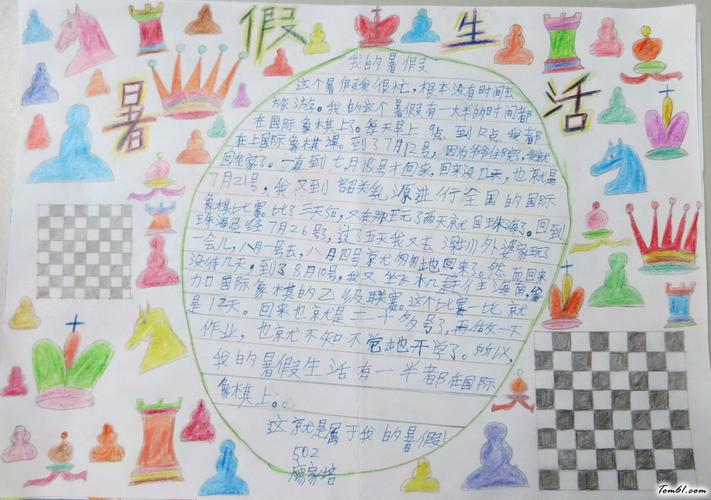 暑假生活
我的暑假
这个暑假我很忙，根本没有时间去
旅游。我的这个暑假有一大半的时间都
在国际象棋上了。每天早上9点到12点我都
在上国际象棋课。到了7月12号，因为爷爷住院，我就
回老家了。一直到七月18号才回来，回来没几天，也就是
7月21号，我又到韶关乳源进行全国的国际
象棋比赛比了三天后，又在那玩了两天就回珠海了。回到
珠海已经7月26号，过了五天我又去深圳外婆家玩了
一会儿，八月一号去，八月四号就匆匆地回来了。然而回来
没待几天，到了8月10号，我又坐飞机
国际象棋的乙级联赛。这个比赛一比就
是12天。回来也就是二十多号了，再做一下
作业，也就不知不觉地开学了。所以，
我的暑假生活有一半都在国际
象棋上。
这就是属于我的暑假！
502
廖家培
Tom61.com